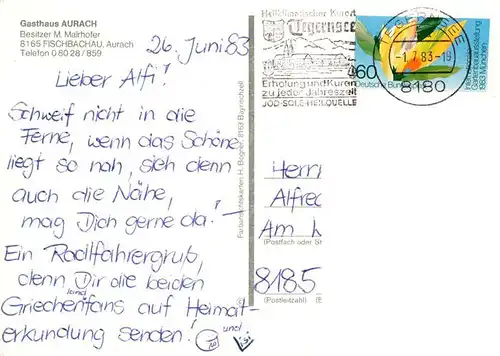 Gasthaus AURACH
Besitzer M. Mairhofer
8165 FISCHBACHAU, Aurach
Telefon 0 80 28 / 859
26. Juni 83
Lieber Alfi!
Schweif nicht in die
Ferne, wenn das Schöne
liegt so nah, sieh denn
auch die Nähe,
mag Dich gerne da! –
Ein Radlfahrergruß,
denn Dir die beiden
Griechenfans auf Heimat-
erkundung senden!
und
Farbansichtskarten H. Bogner, 8163 Bayrischzell
Heilklimatischer Kurort
Tegernsee
Erholung und Kuren
zu jeder Jahreszeit
JOD-SOLE-HEILQUELLE
TEGERNSEE
-1.7.83-19
8180
60
Deutsche Bundespost
1983 München
Herrn
Alfred
Am
(Postfach oder St
8185
(Postleitzahl)